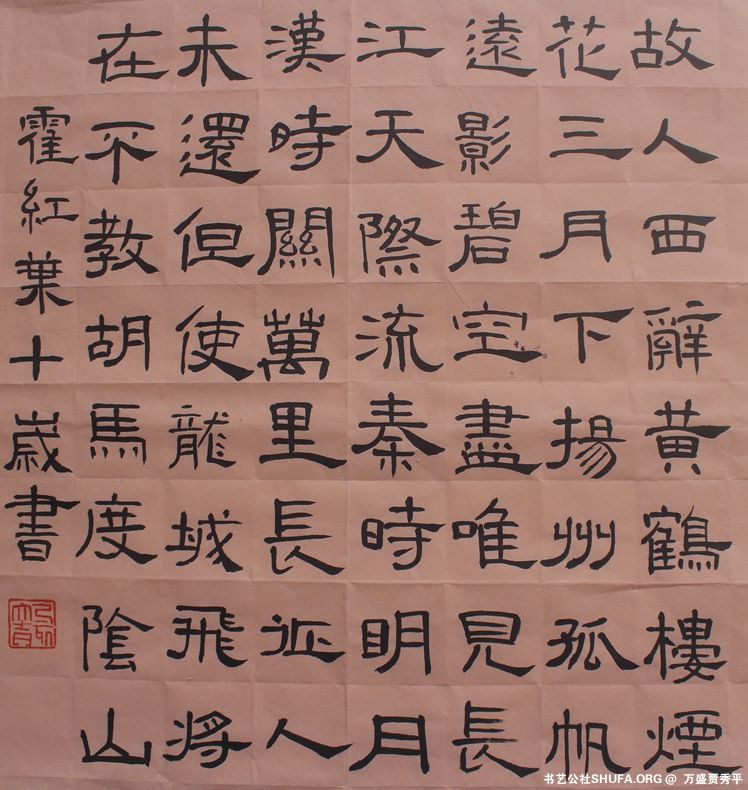 故人西辭黄鶴樓煙
花三月下揚州孤帆
遠影碧空盡唯見長
江天際流秦時明月
漢時關萬里長征人
未還但使龍城飛將
在不教胡馬度陰山
霍紅葉十歲書
书艺公社SHUFA.ORG @ 万盛贾秀平